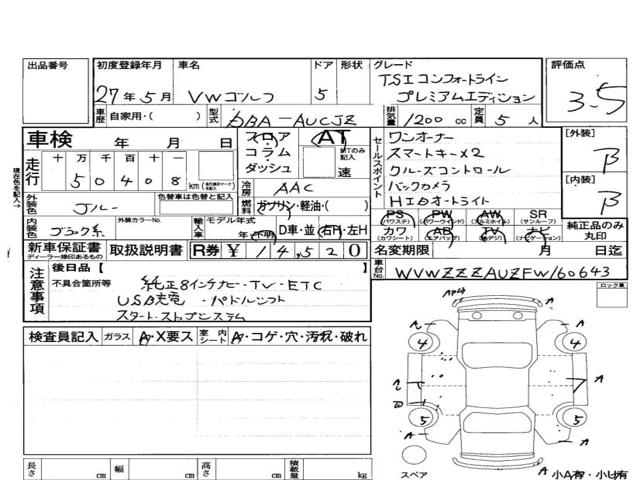 出品番号 初度登録年月 車名 ドア 形状 グレード 評価点
27年5月 VWゴルフ 5 TSIコンフォートライン
プレミアムエディション 3.5
車歴 自家用・( ) 型式 DBA-AUCJZ 排気量 1200 cc 定員 5人
車検 年 月 日 フロア AT セールスポイント ワンオーナー [外装]
コラム MTのみ記入 スマートキー×2 B
走行 十 万 千 百 十 ダッシュ 速 クルーズコントロール
5 0 4 0 8 km 冷房 AAC バックカメラ [内装]
現在色を記入→ 外装色 ブルー 色替車は色替と記入 燃料 ガソリン・軽油・( ) HIDオートライト B
内装色 ブラック系 外装カラーNo. 輸入車 モデル年式 PS PW AW SR
年・不明 D車・並 右H・左H (パワステ) (パワーウインド) (アルミホイル) (サンルーフ)
カワ AB TV ナビ 純正品のみ丸印
(カワシート) (エアバッグ) (地デジ) (ナビゲーション)
新車保証書 取扱説明書 R券 ¥ 14,520 名変期限 年 月 日
ディーラー捺印あるもの
車台No. WVWZZZAUZFW160643
注意事項 後日品 [ ]
不具合箇所等 純正8インチナビ・TV・ETC
USB充電・パドルシフト
スタートストップシステム
ロック車
検査員記入 ガラス A・X要ス 室内シート A・コゲ・穴・汚れ・破れ
4 4
A A
5 5
スペア A 小A有・小U有
長さ cm 幅 cm 高さ cm 積載量 kg